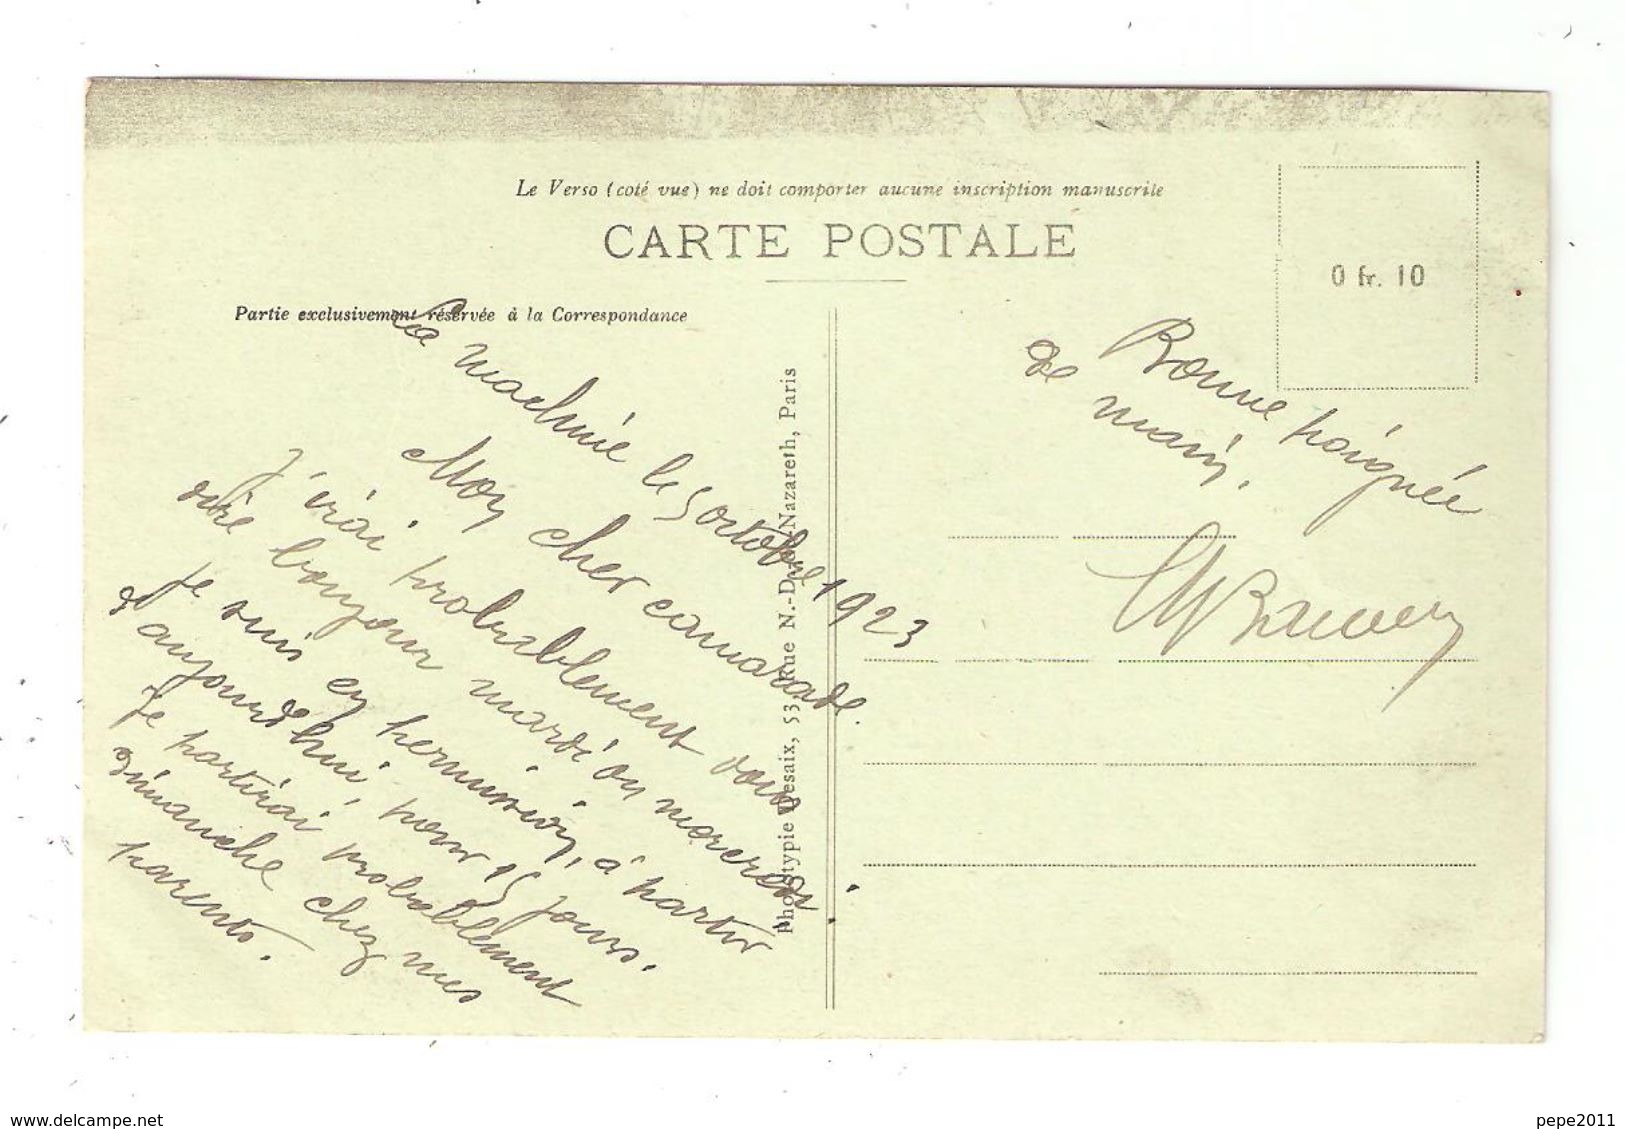 Le Verso (coté vue) ne doit comporter aucune inscription manuscrite
CARTE POSTALE
0 fr. 10
Partie exclusivement réservée à la Correspondance
La machine le 5 octobre 1923
Mon cher camarade.
J'irai probablement vous
dire bonjour mardi ou mercredi.
Je suis en permission, à partir
d'aujourd'hui, pour 15 jours.
Je partirai probablement
dimanche chez mes
parents.
Phototypie Desaix, 53, Rue N.-D. de Nazareth, Paris
Bonne poignée
de main.
delcampe.net
pepe2011